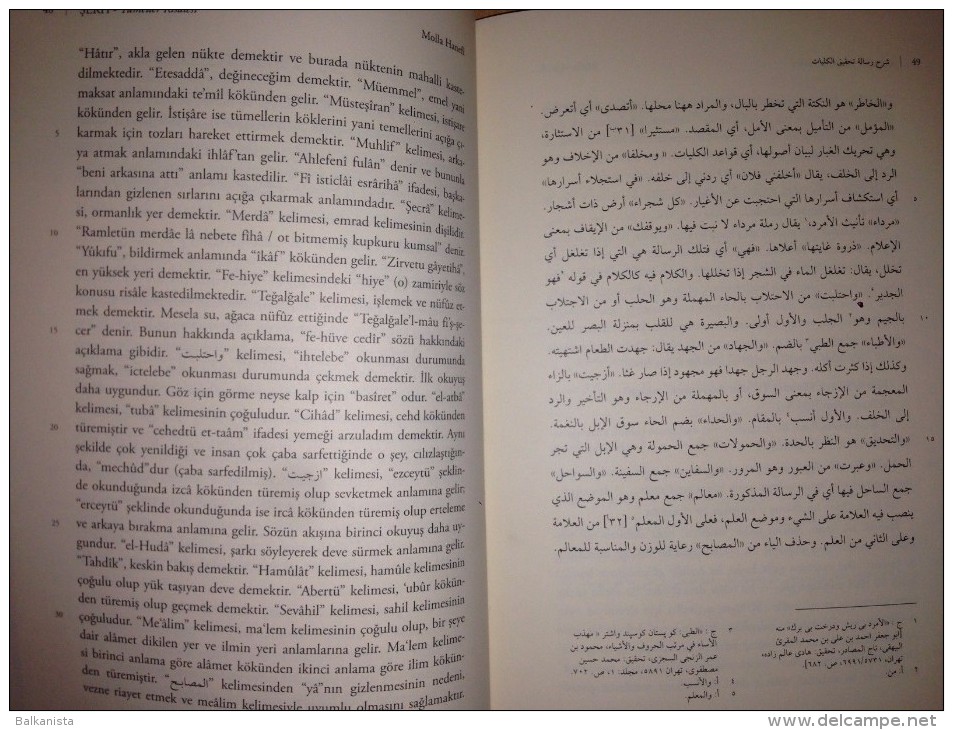 48 | ŞERH - Tahkîku'l-
Molla Hanefî
“Hâtır”, akla gelen nükte demektir ve burada nüktenin mahalli kaste-
dilmektedir. “Etesaddâ”, değineceğim demektir. “Müemmel”, emel yani
maksat anlamındaki te’mîl kökünden gelir. “Müsteşîran” kelimesi, istişâre
kökünden gelir. İstişâre ise tümellerin köklerini yani temellerini açığa çı-
5 karmak için tozları hareket ettirmek demektir. “Muhlif” kelimesi, arka-
ya atmak anlamındaki ihlâf’tan gelir. “Ahlefenî fulân” denir ve bununla
“beni arkasına attı” anlamı kastedilir. “Fî isticlâi esrârihâ” ifadesi, başka-
larından gizlenen sırlarını açığa çıkarmak anlamındadır. “Şecrâ” kelime-
si, ormanlık yer demektir. “Merdâ” kelimesi, emrad kelimesinin dişilidir.
10 “Ramletün merdâe lâ nebete fîhâ / ot bitmemiş kupkuru kumsal” denir.
“Yûkıfu”, bildirmek anlamında “îkâf” kökünden gelir. “Zirvetu gâyetihâ”,
en yüksek yeri demektir. “Fe-hiye” kelimesindeki “hiye” (o) zamiriyle söz
konusu risâle kastedilmektedir. “Teğalğale” kelimesi, işlemek ve nüfûz et-
mek demektir. Mesela su, ağaca nüfûz ettiğinde “Teğalğale’l-mâu fi’ş-şe-
15 cer” denir. Bunun hakkında açıklama, “fe-hüve cedîr” sözü hakkındaki
açıklama gibidir. “واحتلبت” kelimesi, “ihtelebe” okunması durumunda
sağmak, “ictelebe” okunması durumunda çekmek demektir. İlk okuyuş
daha uygundur. Göz için görme neyse kalp için “basîret” odur. “el-atbâ”
kelimesi, “tubâ” kelimesinin çoğuludur. “Cihâd” kelimesi, cehd kökünden
20 türemiştir ve “cehedtü et-taâm” ifadesi yemeği arzuladım demektir. Aynı
şekilde çok yenildiği ve insan çok çaba sarfettiğinde o şey, cılızlaştığın-
da, “mechûd”dur (çaba sarfedilmiş). “ازجيت” kelimesi, “ezceytü” şeklin-
de okunduğunda izcâ kökünden türemiş olup sevketmek anlamına gelir;
“erceytü” şeklinde okunduğunda ise ircâ kökünden türemiş olup erteleme
25 ve arkaya bırakma anlamına gelir. Sözün akışına birinci okuyuş daha uy-
gundur. “el-Hudâ” kelimesi, şarkı söyleyerek deve sürmek anlamına gelir.
“Tahdîk”, keskin bakış demektir. “Hamûlât” kelimesi, hamûle kelimesinin
çoğulu olup yük taşıyan deve demektir. “Abertü” kelimesi, ‘ubûr kökün-
den türemiş olup geçmek demektir. “Sevâhil” kelimesi, sahil kelimesinin
30 çoğuludur. “Me‘âlim” kelimesi, ma‘lem kelimesinin çoğulu olup, bir şeye
dair alâmet dikilen yer ve ilmin yeri anlamlarına gelir. Ma‘lem kelime-
si birinci anlama göre alâmet kökünden ikinci anlama göre ilim kökün-
den türemiştir. “المصابح” kelimesinden “yâ”nın gizlenmesinin nedeni,
vezne riayet etmek ve meâlim kelimesiyle uyumlu olmasını sağlamaktır.
شرح رسالة تحقيق الكليات | 49
و«الخاطر» هو النكتة التي تخطر بالبال، والمراد ههنا محلها. «أتصدى» أي أتعرض.
«المؤمل» من التأميل بمعنى الأمل، أي المقصد. «مستثيرا» [٣١ب] من الاستثارة،
وهي تحريك الغبار لبيان أصولها، أي قواعد الكليات. «ومخلفا» من الإخلاف وهو
الرد إلى الخلف، يقال «أخلفني فلان» أي ردني إلى خلفه. «في استجلاء أسرارها»
٥ أي استكشاف أسرارها التي احتجبت عن الأغيار. «كل شجراء» أرض ذات أشجار.
«مرداء» تأنيث الأمرد،١ يقال رملة مرداء لا تبت فيها. «ويوقفك» من الإيقاف بمعنى
الإعلام. «ذروة غايتها» أعلاها. «فهي» أي فتلك الرسالة هي التي إذا تغلغل أي
تخلل، يقال: تغلغل الماء في الشجر إذا تخللها. والكلام فيه كالكلام في قوله «فهو
الجدير٢. «واحتلبت» من الاحتلاب بالحاء المهملة وهو الحلب أو من الاجتلاب
١٠ بالجيم وهو الجلب والأول أولى. والبصيرة هي للقلب بمنزلة البصر للعين.
«والأطباء» جمع الطبي٣ بالضم. «والجهاد» من الجهد يقال: جهدت الطعام اشتهيته.
وكذلك إذا كثرت أكله. وجهد الرجل جهدا فهو مجهود إذا صار غثا. «أزجيت» بالزاء
المعجمة من الإزجاء بمعنى السوق، أو بالمهملة من الإرجاء وهو التأخير والرد
إلى الخلف. والأول أنسب٤ بالمقام. «والحداء» بضم الحاء سوق الإبل بالنغمة.
١٥ «والتحديق» هو النظر بالحدة. «والحمولات» جمع الحمولة وهي الإبل التي تجر
الحمل. «وعبرت» من العبور وهو المرور. «والسفاين» جمع السفينة. «والسواحل»
جمع الساحل فيها أي في الرسالة المذكورة. «معالم» جمع معلم وهو الموضع الذي
ينصب فيه العلامة على الشيء وموضع العلم، فعلى الأول المعلم٥ [٣٢أ] من العلامة
وعلى الثاني من العلم. وحذف الياء من «المصابح» رعاية للوزن والمناسبة للمعالم.
١ ج : «الأمرد بى ريش ودرخت بى برك» منه
أبو جعفر احمد بن على بن محمد المقرئ
البيهقى، تاج المصادر، تحقيق: هادى عالم زاده،
تهران، ٦٩٩١/٥٧٣١، ص. ٦٨٢.
٢ أ: من
٣ ج : «الطبى: كو پستان كوسپند واشتر» مهذب
الأسماء في مرتب الحروف والأشياء، محمود بن
عمر الزنجى السجزى، تحقيق: محمد حسين
مصطفوى، تهران ٥٨٩١، مجلد: ١، ص. ٧٠٢.
٤ أ: والأنسب
٥ أ: والمعلم
Balkanista
www.delcampe.net